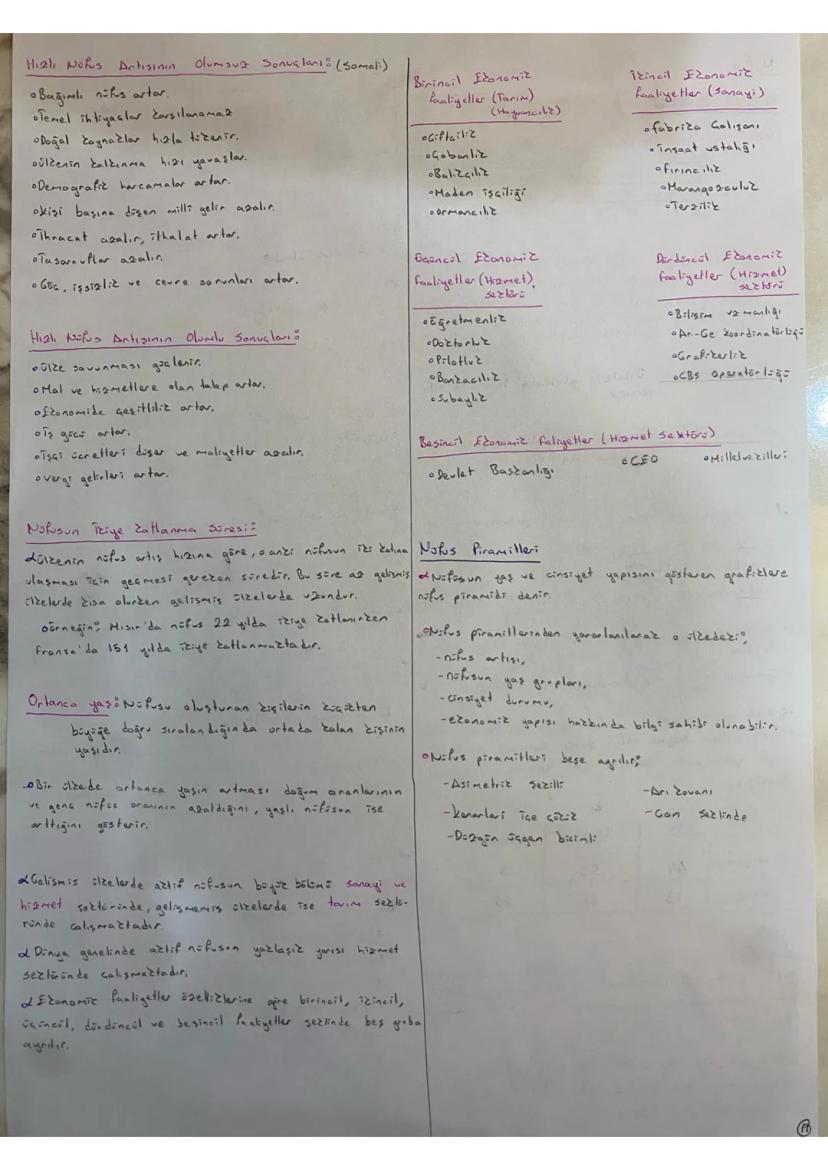 Hızlı Nüfus Artışının Olumsuz Sonuçları: (Somali)
Bağımlı nüfus artar.
Temel ihtiyaçlar karşılanamaz
Doğal kaynaklar hızla tükenir.
Ülkenin kalkınma hızı yavaşlar.
Demografik harcamalar artar.
Kişi başına düşen milli gelir azalır.
İhracat azalır, ithalat artar.
Tasarruflar azalır.
Göç, işsizlik ve çevre sorunları artar.
Hızlı Nüfus Artışının Olumlu Sonuçları:
Ülke savunması güçlenir.
Mal ve hizmetlere olan talep artar.
Ekonomide çeşitlilik artar.
İş gücü artar.
İşçi ücretleri düşer ve maliyetler azalır.
Vergi gelirleri artar.
Nüfusun İkiye Katlanma Süresi:
Ülkenin nüfus artış hızına göre, o anki nüfusun iki katına
ulaşması için geçmesi gereken süredir. Bu süre az gelişmiş
ülkelerde kısa olurken gelişmiş ülkelerde uzundur.
Örneğin; Mısır'da nüfus 22 yılda ikiye katlanırken
Fransa'da 151 yılda ikiye katlanmaktadır.
Ortanca yaş: Nüfusu oluşturan kişilerin küçükten
büyüğe doğru sıralandığında ortada kalan kişinin
yaşıdır.
Bir ülkede ortanca yaşın artması doğum oranlarının
ve genç nüfus oranının azaldığını, yaşlı nüfusun ise
arttığını gösterir.
Gelişmiş ülkelerde aktif nüfusun büyük bölümü sanayi ve
hizmet sektöründe, gelişmemiş ülkelerde ise tarım sektö-
ründe çalışmaktadır.
Dünya genelinde aktif nüfusun yaklaşık yarısı hizmet
sektöründe çalışmaktadır.
Ekonomik faaliyetler özelliklerine göre birincil, ikincil,
üçüncül, dördüncül ve beşincil faaliyetler şeklinde beş gruba
ayrılır.
Birincil Ekonomik
faaliyetler (Tarım)
(Hayvancılık)
Çiftçilik
Çobanlık
Balıkçılık
Maden işçiliği
Ormancılık
İkincil Ekonomik
faaliyetler (Sanayi)
Fabrika Çalışanı
İnşaat ustalığı
Fırıncılık
Marangozculuk
Terzilik
Üçüncül Ekonomik
faaliyetler (Hizmet)
sektörü
Öğretmenlik
Doktorluk
Pilotluk
Bankacılık
Subaylık
Dördüncül Ekonomik
faaliyetler (Hizmet)
sektörü
Bilişim uzmanlığı
Ar-Ge koordinatörlüğü
Grafikerlik
CBS Operatörlüğü
Beşincil Ekonomik Faliyetler (Hizmet Sektörü)
Devlet Başkanlığı
CEO
Milletvekilleri
Nüfus Piramitleri
Nüfusun yaş ve cinsiyet yapısını gösteren grafiklere
nüfus piramidi denir.
Nüfus piramitlerinden yararlanılarak o ülkedeki;
-nüfus artışı,
-nüfusun yaş grupları,
-cinsiyet durumu,
-ekonomik yapısı hakkında bilgi sahibi olunabilir.
Nüfus piramitleri beşe ayrılır;
-Asimetrik şekilli
-Arı kovanı
-kenarları içe çökük
-Çan şeklinde
-Düzgün üçgen biçimli